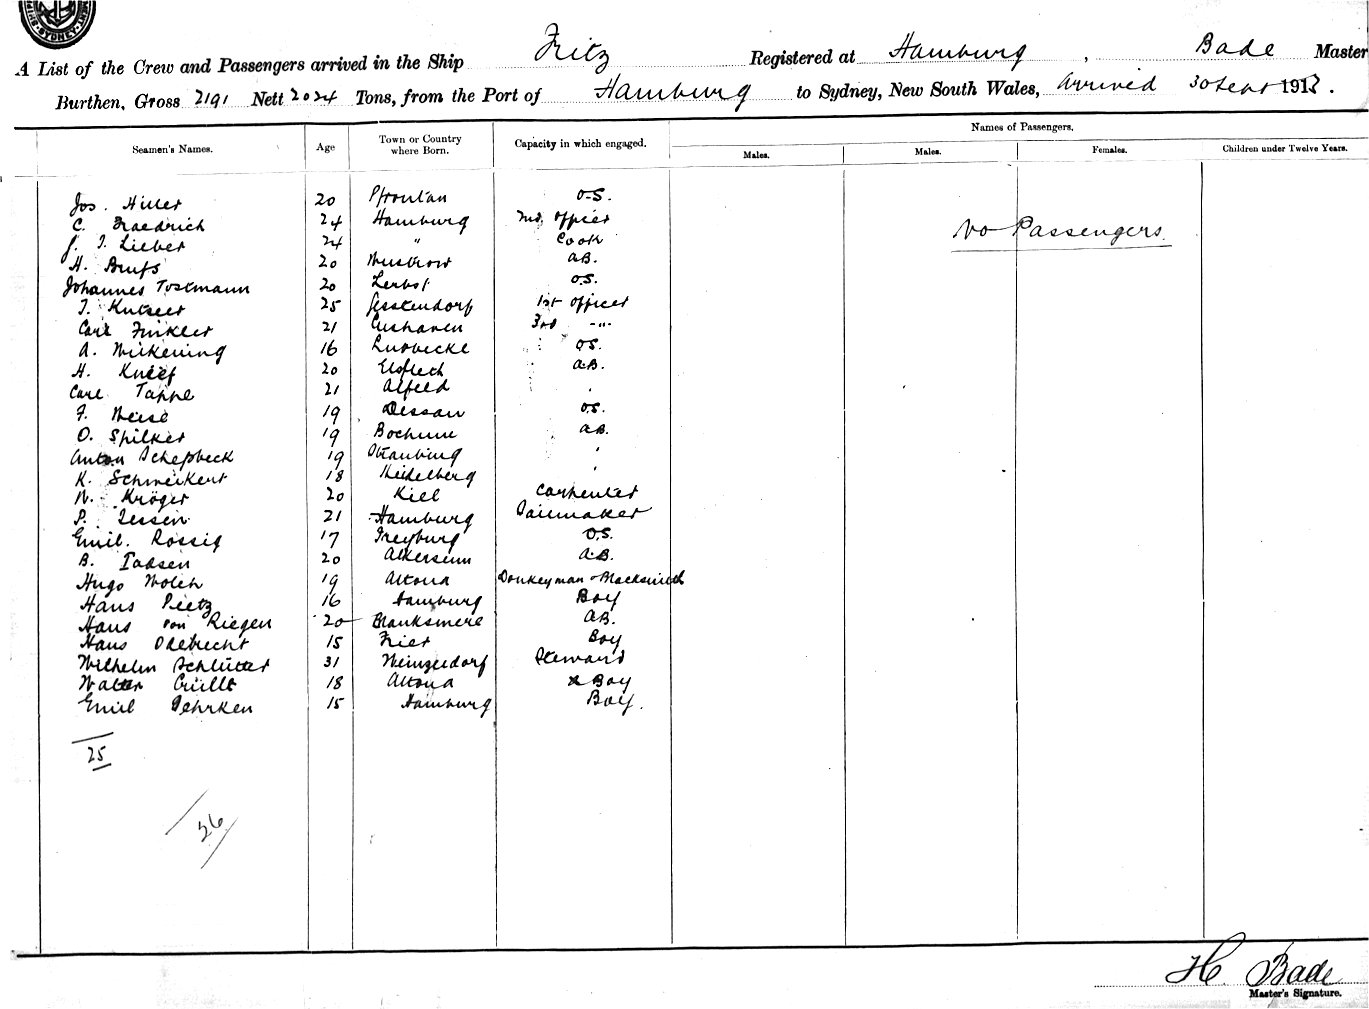 SYDNEY
A List of the Crew and Passengers arrived in the Ship Fritz Registered at Hamburg, Bade Master
Burthen, Gross 2191 Nett 2024 Tons, from the Port of Hamburg to Sydney, New South Wales, arrived 30 Sept 191
Names of Passengers.
Seamen's Names. Age Town or Country where Born. Capacity in which engaged. Males. Males. Females. Children under Twelve Years.
Jos. Hiller 20 Pfrontan O.S.
C. Fraedrich 24 Hamburg 2nd officer
J. J. Lieber 24 " Cook
H. Brufs 20 Wustrow A.B.
Johannes Tostmann 20 Zerbst O.S.
J. 25 Geestendorf 1st officer
Carl Finkler 21 Cuxhaven 3rd -"-
A. Wilkening 16 Lubbecke O.S.
H. Kneef 20 Elsfleth A.B.
Carl Tappe 21 Alfeld "
F. Weise 19 Dessau O.S.
O. Spilker 19 Bochum A.B.
Anton Schepbeck 19 Straubing "
K. Schweikert 18 Heidelberg "
N. Kröger 20 Kiel Carpenter
P. Jessen 21 Hamburg Sailmaker
Emil Rossig 17 Freyburg O.S.
B. Tadsen 20 Alkersum A.B.
Hugo Molch 19 Altona Donkeyman + Blacksmith
Hans Pietz 16 Hamburg Boy
Hans von Riegen 20 Blanksmere A.B.
Hans Olbrecht 15 Trier Boy
Wilhelm Schlüter 31 Steward
Walter 18 Altona x Boy
Emil Gehrken 15 Hamburg Boy.
No Passengers.
25
26
H Bade
Master's Signature.